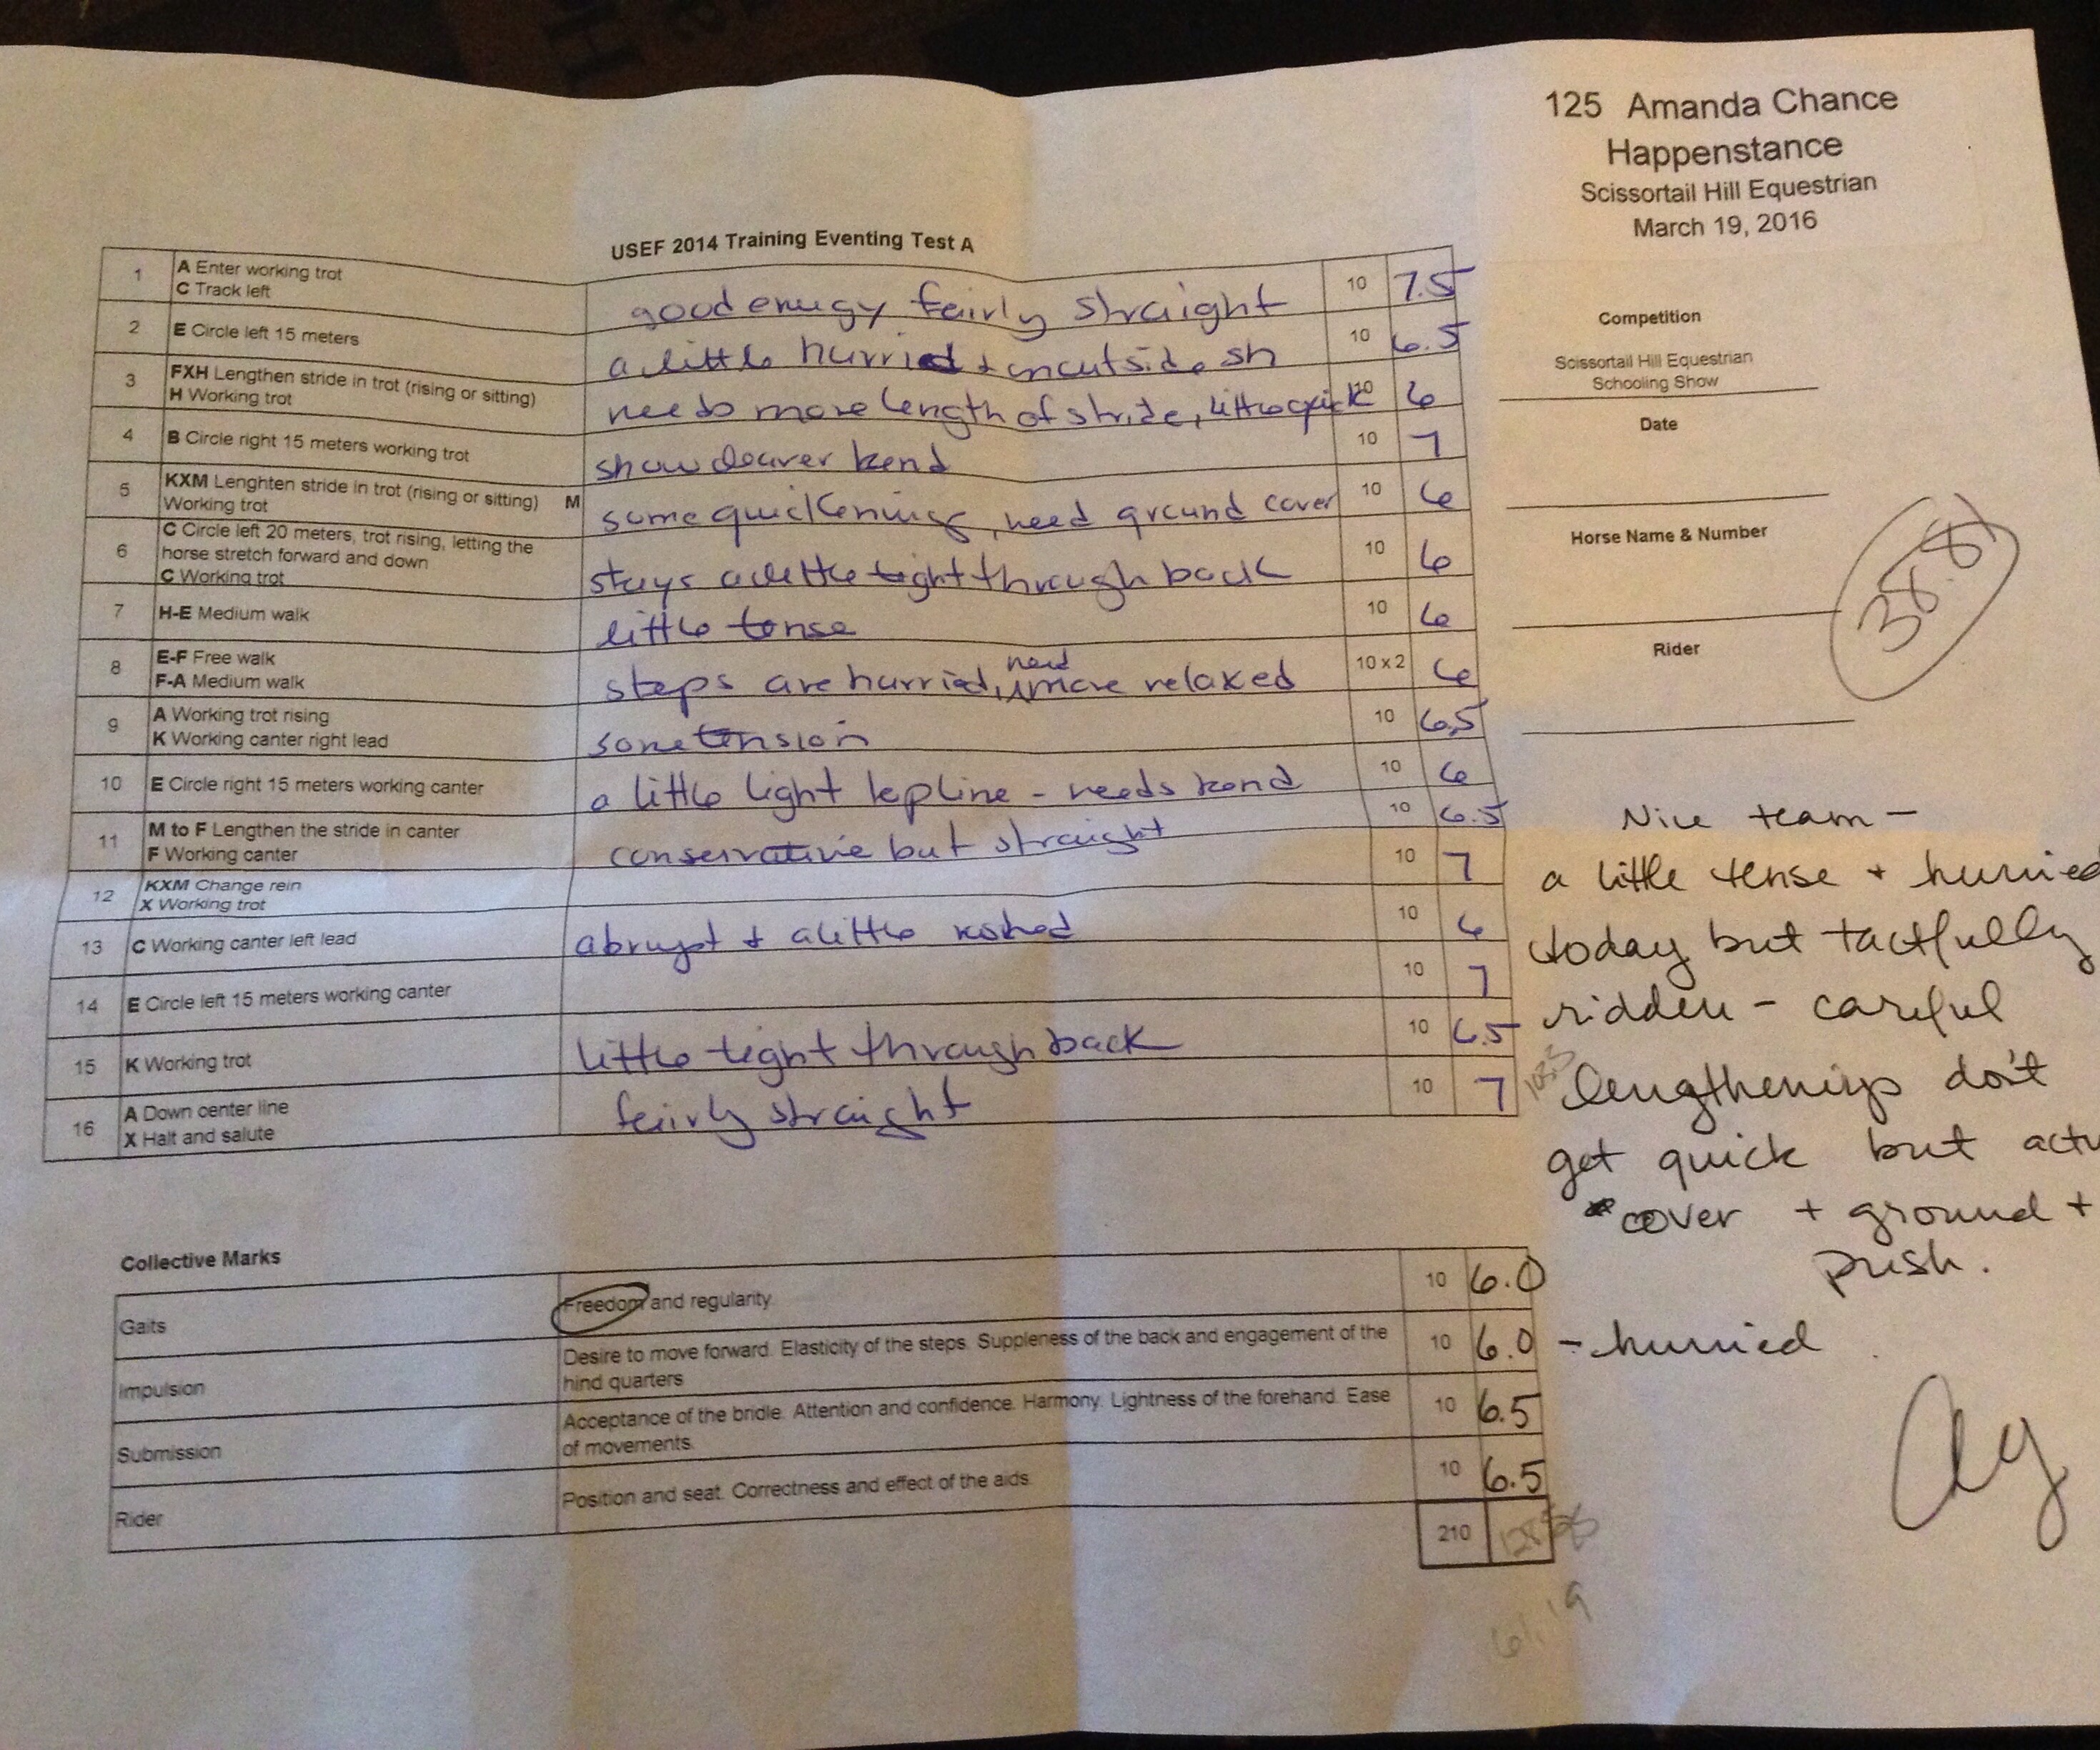 125 Amanda Chance
Happenstance
Scissortail Hill Equestrian
March 19, 2016
USEF 2014 Training Eventing Test A
1 A Enter working trot
C Track left
good enugy fairly straight 10 7.5
2 E Circle left 15 meters a little hurried + on outside sh 10 6.5
3 FXH Lengthen stride in trot (rising or sitting)
H Working trot
needs more length of stride, little quick 10 6
4 B Circle right 15 meters working trot show clearer bend 10 7
5 KXM Lenghten stride in trot (rising or sitting) M
Working trot
some quickening, need ground cover 10 6
6 C Circle left 20 meters, trot rising, letting the
horse stretch forward and down
C Working trot
stays a little tight through back 10 6
7 H-E Medium walk little tense 10 6
8 E-F Free walk
F-A Medium walk
steps are hurried, need more relaxed 10 x 2 6
9 A Working trot rising
K Working canter right lead
some tension 10 6.5
10 E Circle right 15 meters working canter a little tight topline - needs bend 10 6
11 M to F Lengthen the stride in canter
F Working canter
conservative but straight 10 6.5
12 KXM Change rein
X Working trot
10 7
13 C Working canter left lead abrupt + a little rushed 10 6
14 E Circle left 15 meters working canter 10 7
15 K Working trot little tight through back 10 6.5
16 A Down center line
X Halt and salute
fairly straight 10 7
Collective Marks
Gaits Freedom and regularity. 10 6.0
Impulsion Desire to move forward. Elasticity of the steps. Suppleness of the back and engagement of the
hind quarters
10 6.0 - hurried
Submission Acceptance of the bridle. Attention and confidence. Harmony. Lightness of the forehand. Ease
of movements.
10 6.5
Rider Position and seat. Correctness and effect of the aids. 10 6.5
210
61.19
Competition
Scissortail Hill Equestrian
Schooling Show
Date
Horse Name & Number
Rider
38.81
Nice team -
a little tense + hurried
today but tactfully
ridden - careful
lengthenings don't
get quick but actu
cover + ground +
push.